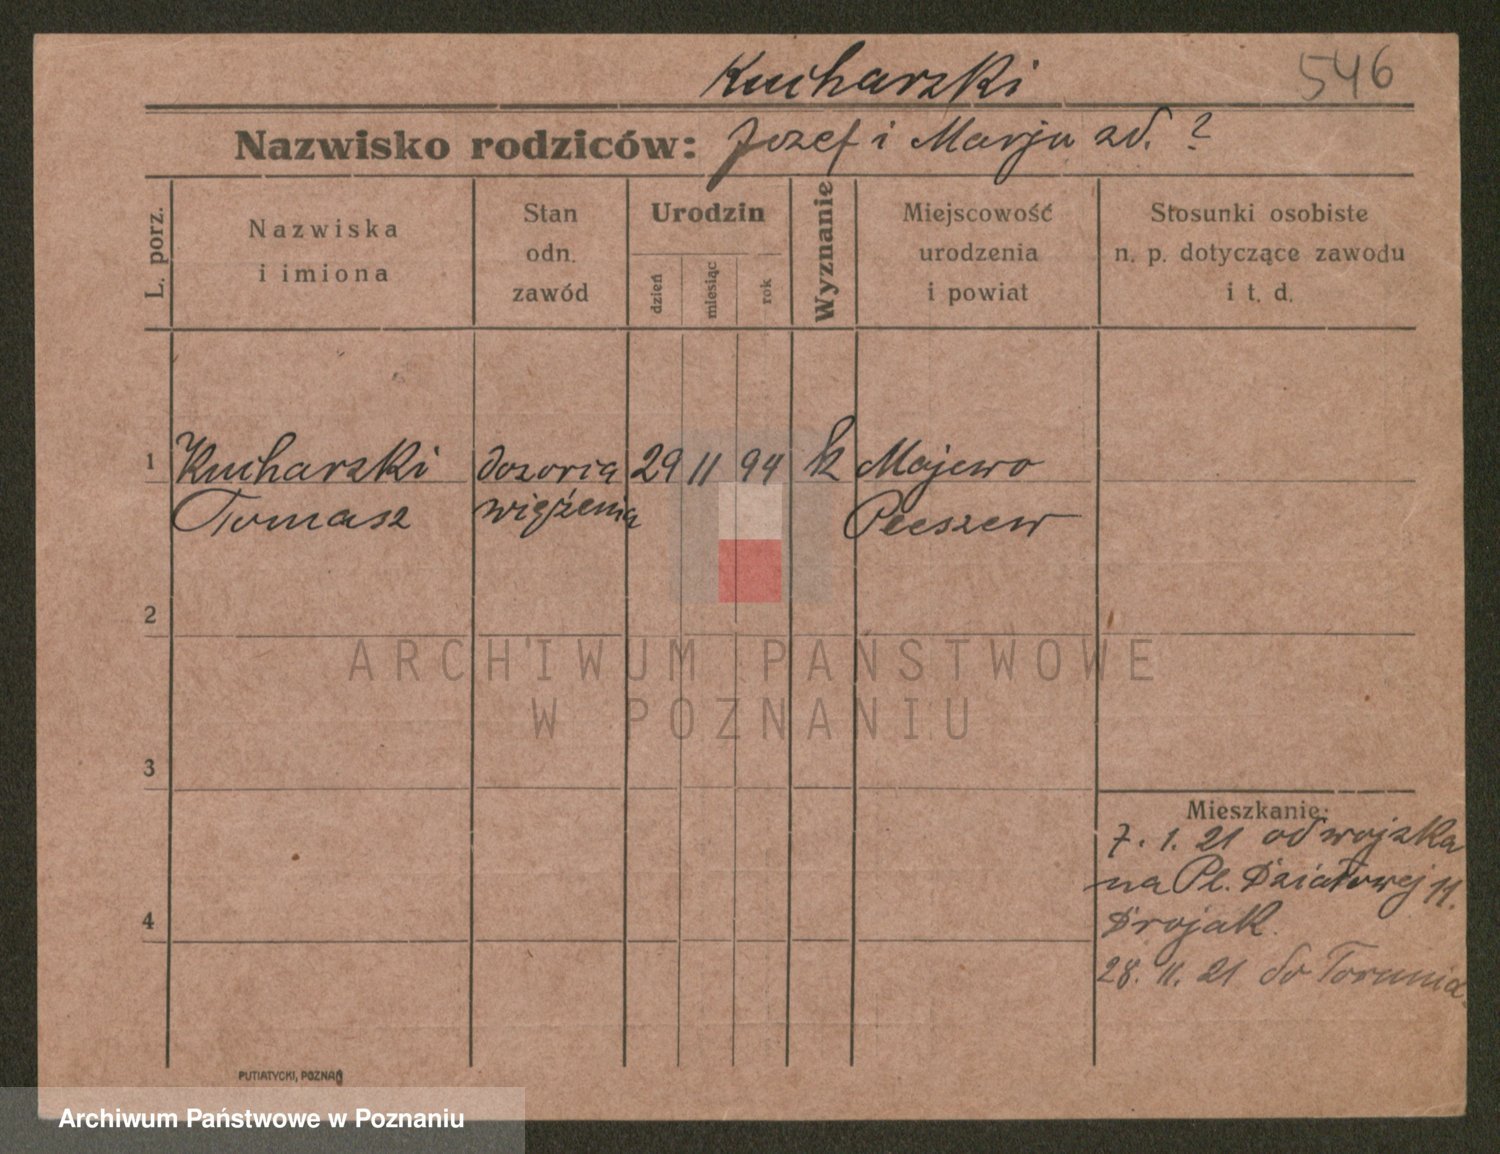 Kucharski
546
Nazwisko rodziców: Jozef i Marja zd. ?
L. porz.
Nazwiska
i imiona
Stan
odn.
zawód
Urodzin
dzień
miesiąc
rok
Wyznanie
Miejscowość
urodzenia
i powiat
Stosunki osobiste
n. p. dotyczące zawodu
i t. d.
1 Kucharski dozorca 29 11 94 k Majewo
Tomasz więzienia Pleszew
2
3
4
Mieszkanie:
7. 1. 21 od wojska
na Pl. Działowej 11.
28. 11. 21 do Torunia
PUTIATYCKI, POZNAŃ
ARCHIWUM PAŃSTWOWE
W POZNANIU
Archiwum Państwowe w Poznaniu